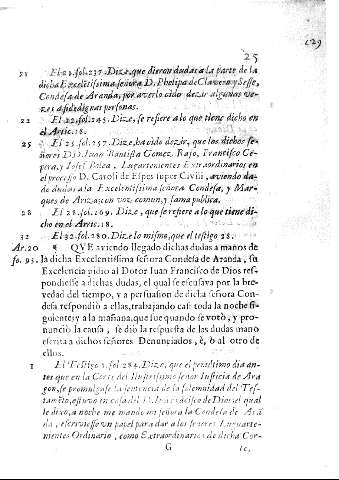 25
129
21 El 21. fol. 237. Dize, que dieron dudas a la parte de la
dicha Excelentissima señora D. Phelipa de Clavero y Sesse,
Condesa de Aranda, por averlo oido dezir algunas ve-
zes a fidedignas personas.
22 El 22. fol. 245. Dize, se refiere a lo que tiene dicho en
el Artic. 18.
25 El 25. fol. 257. Dize, ha oido dezir, que los dichos se-
ñores DD. Iuan Bautista Gomez, Rajo, Francisco Ce-
pera, y Iosef Boira, Lugartenientes Extraordinarios en
el processo D. Caroli de Espes super Civili, aviendo da-
do dudas a la Excelentissima señora Condesa, y Mar-
ques de Ariza; con voz comun, y fama publica.
28 El 28. fol. 269. Dize, que se refiere a lo que tiene di-
cho en el Artic. 18.
32 El 32. fol. 280. Dize lo mismo, que el testigo 28.
Ar. 20 ¶ QVE aviendo llegado dichas dudas a manos de
fo. 95. la dicha Excelentissima señora Condesa de Aranda, su
Excelencia pidio al Dotor Iuan Francisco de Dios res-
pondiesse a dichas dudas, el qual se escusava por la bre-
vedad del tiempo, y a persuasion de dicha señora Con-
desa respondió a ellas, trabajando casi toda la noche si-
guiente y a la mañana, que fue quando se votò, y pro-
nunciò la causa, se diò la respuesta de las dudas mano
escrita a dichos señores Denunciados, ê, ò al otro de
ellos.
1 El Testigo 1. fol. 284. Dize, que el penultimo dia an-
tes que en la Corte del Ilustrissimo señor Iusticia de Ara
gon, se promulgasse la sentencia de la solemnidad del Tes-
tamẽto, estuvo en casa del D. Iuan Frãcisco de Dios el qual
le dixo, a noche me mando mi señora la Condesa de Arã
da, escriviesse un papel para dar a los señores Lugarte-
nientes Ordinario, como Extraordinarios de dicha Cor-
G te,